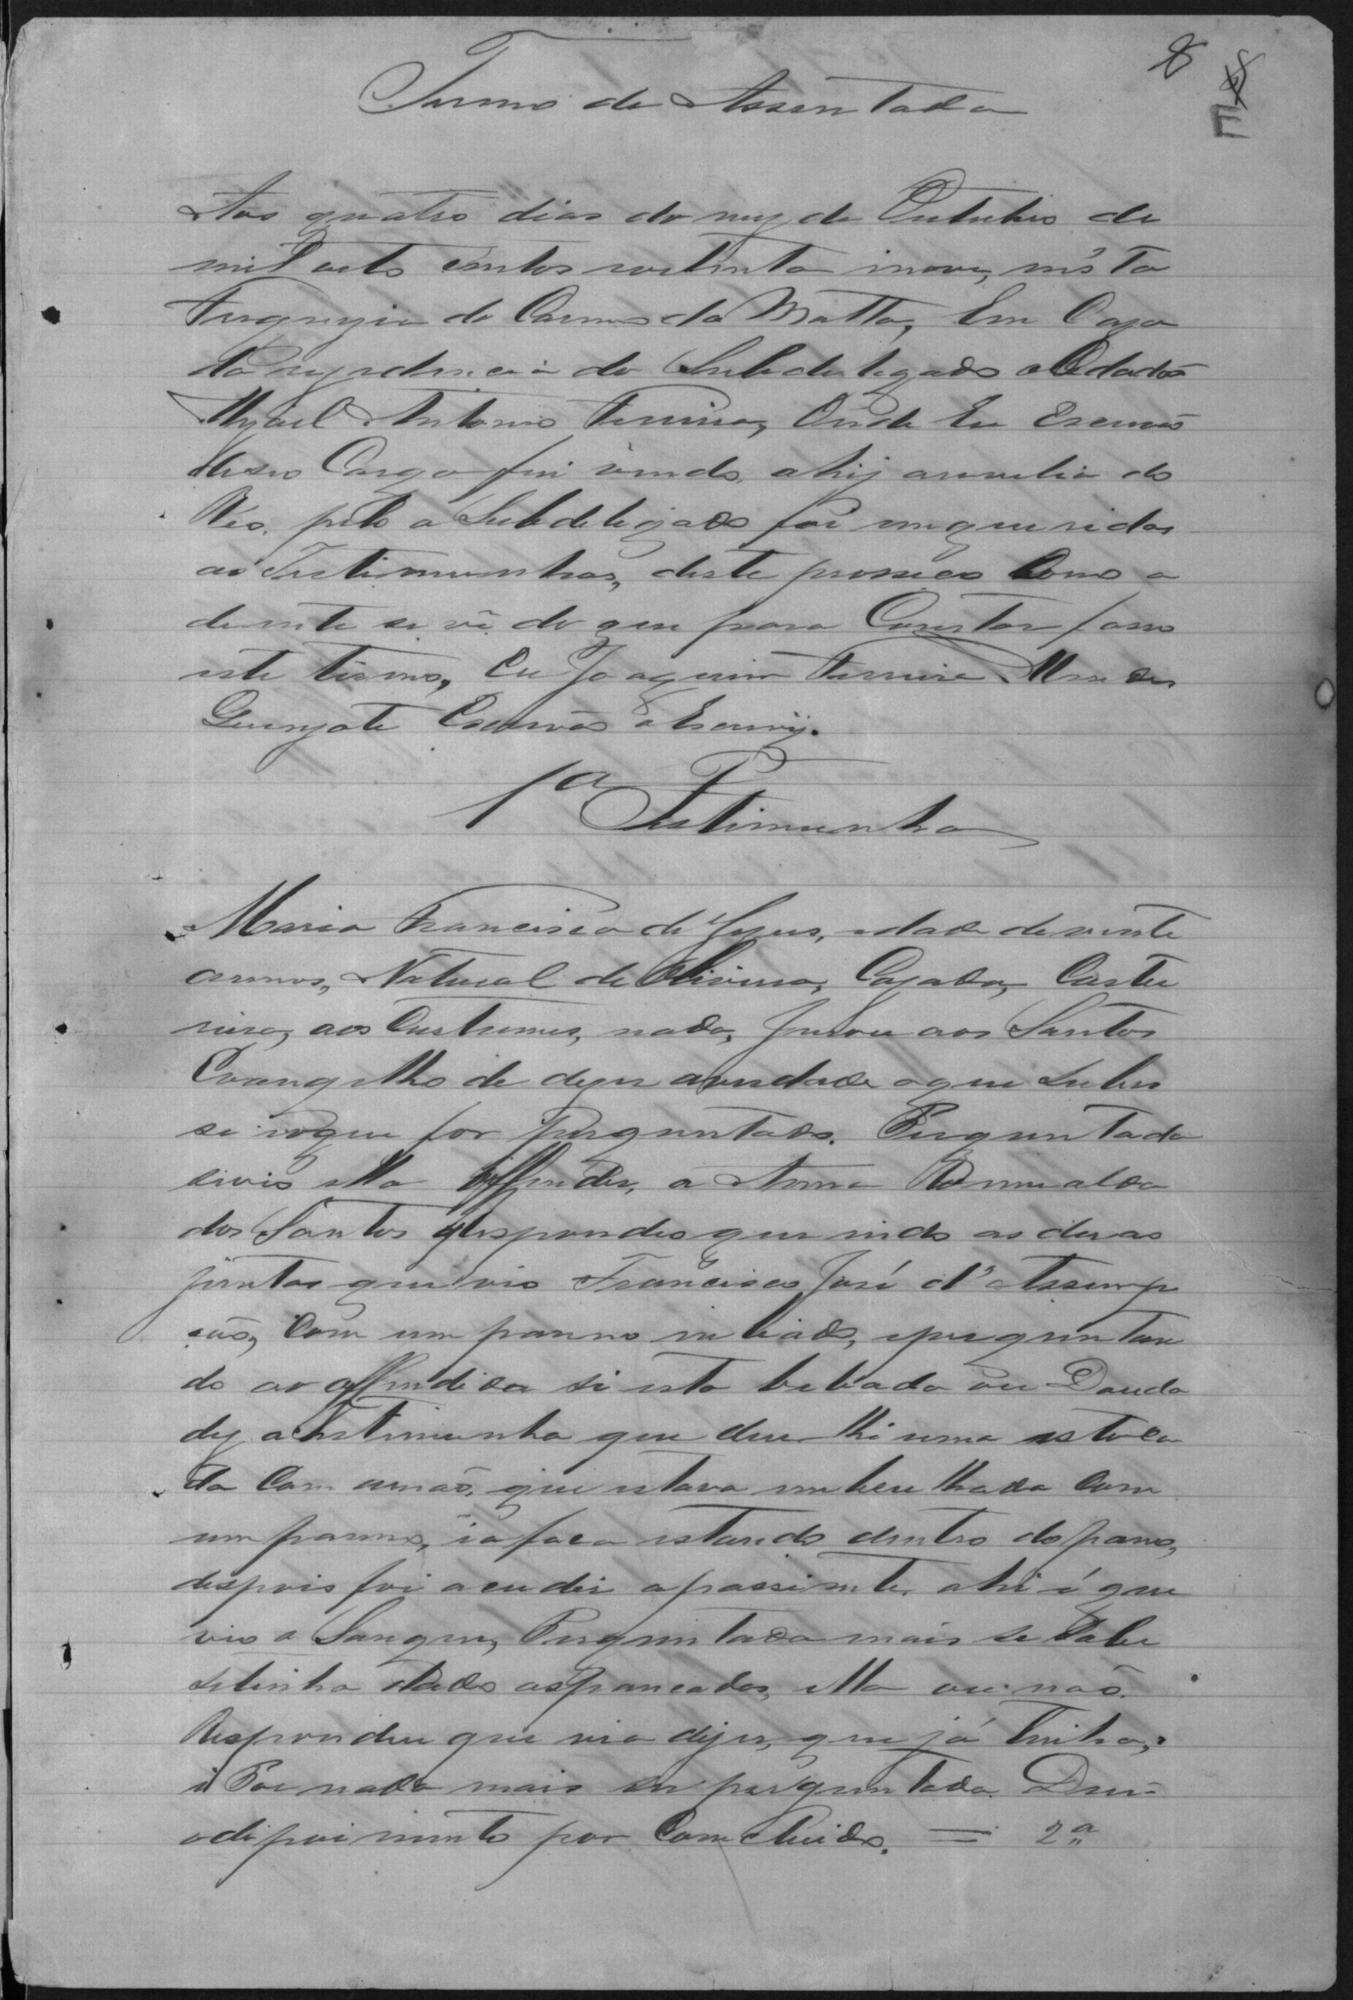 8 8
E
Termo de Assentada
Aos quatro dias do mez de Outubro de
mil oito centos setenta inove, nésta
Freguezia do Carmo da Matta, Em Caza
da rezidencia do Subdelegado oCidadão
Mizael Antonio Ferreira, Onde Eu Escrivão
deseo Cargo fui vindo, ahi arevelia do
Réo. pelo o Subdelegado foi inqueridas
as Testimunhas, deste prosseço Como a
deante se vê do que para Constar faço
este termo, Eu Joaquim Ferreira
Escrivão oEscrevy.
1a Testimunha
Maria Francisca de Jezus, edade de vinte
annos, Natural de Oliveira, Cazada, Custu
reira, aos Custumes, nada, Jurou aos Santos
Evangelhos de dizer averdade oque Sube
se ioque for perguntado. Perguntada
sivio ella offender, a Anna Romualda
dos Santos Respondeo que indo as duas
juntas que vio Francisco José d'Assump
ção, Com um panno inleado, eperguntan
do ao offendida si esta bebada ou Douda
diz atestimunha que deu lhi uma estoca
da Com amão, que estava embrulhada Com
um panno, iafaca estando dentro do pano,
despois foi acudir apassiente, ahi é que
vio o Sangue, Perguntada mais se Sabe
seelle tinha dado aspancadas, ella ou não.
Respondeu que via dizer, que já tinha,
i Foi nada mais perguntada. Deu-
odipoimento por Comcluido. = 2a